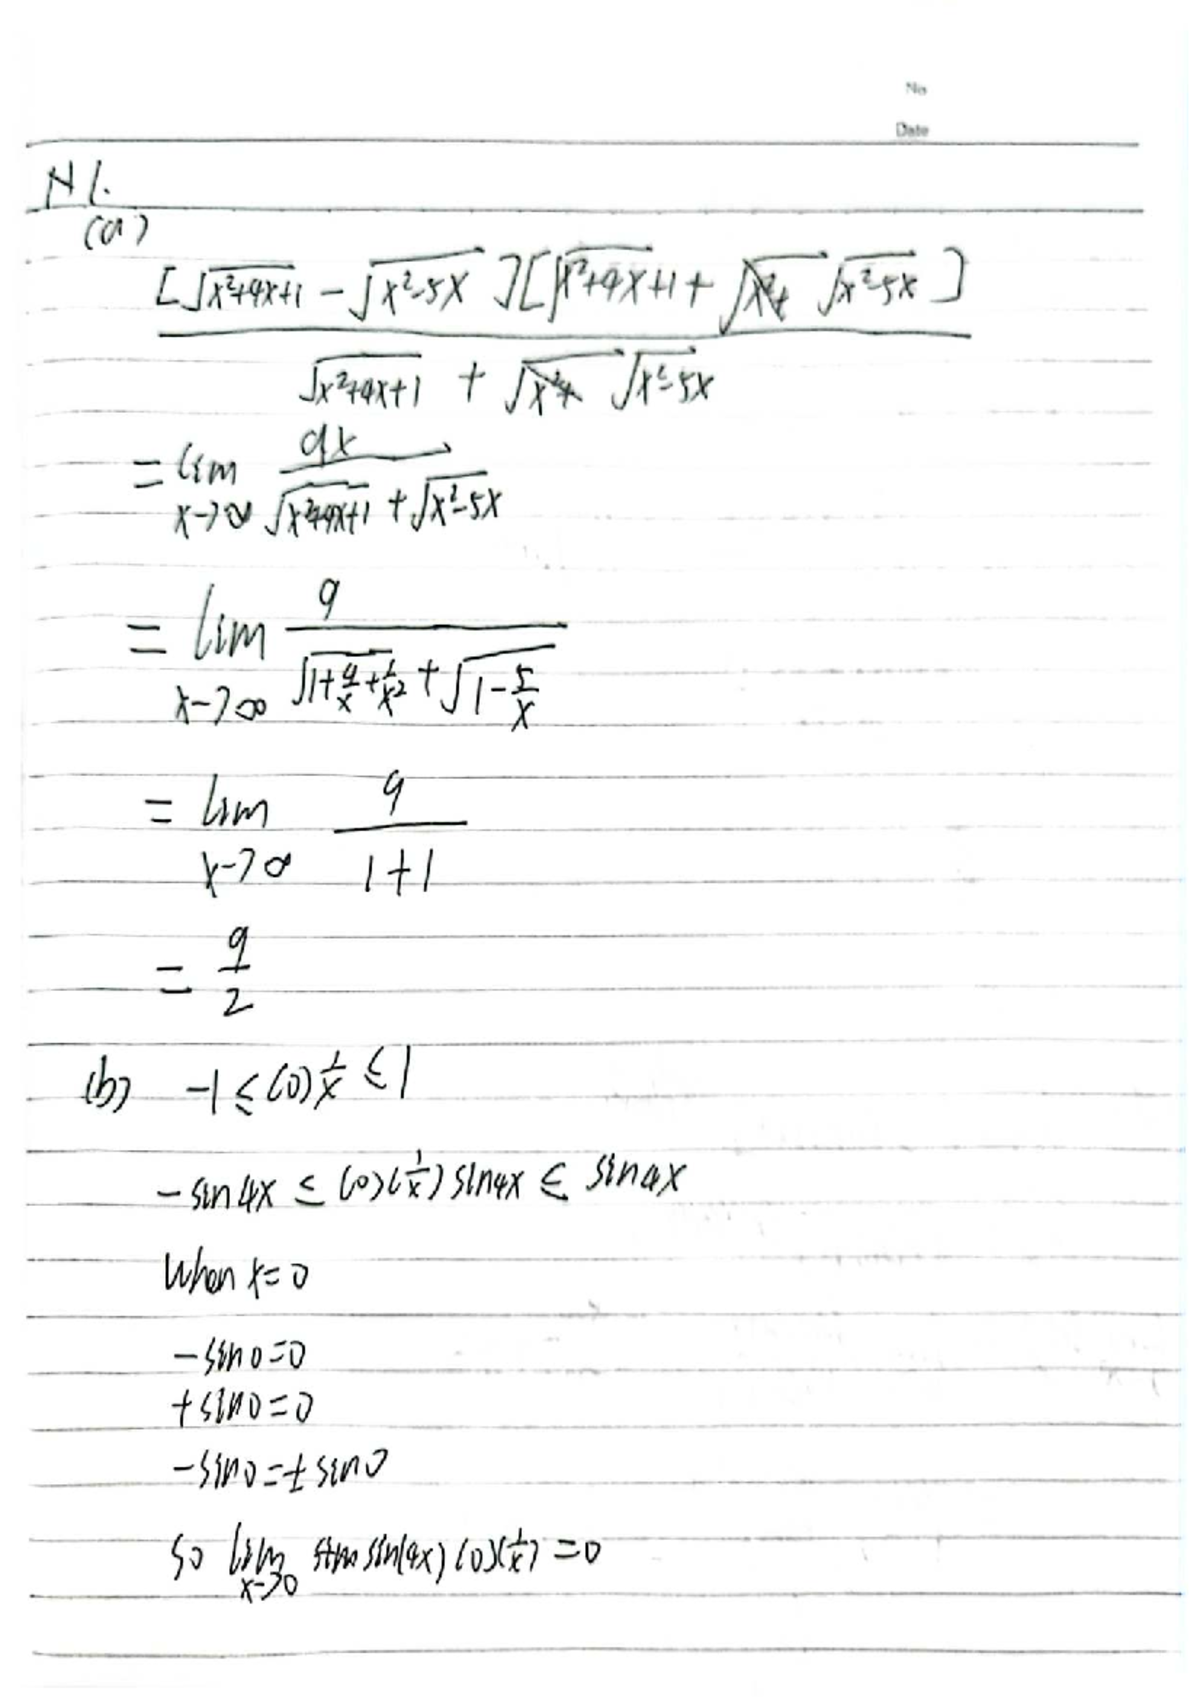 No
Date
N1.
(a)
[√(x²+4x+1) - √(x²-5x)][√(x²+4x+1) + √(x²-5x)]
√(x²+4x+1) + √(x²-5x)
= lim x->∞ 9x / (√(x²+4x+1) + √(x²-5x))
= lim x->∞ 9 / (√(1+4/x+1/x²) + √(1-5/x))
= lim x->∞ 9 / (1+1)
= 9/2
(b) -1 ≤ cos 1/x ≤ 1
-sin4x ≤ cos(1/x) sin4x ≤ sin4x
When x=0
-sin0=0
+sin0=0
-sin0=+sin0
So lim x->0 sin(4x) cos(1/x) = 0